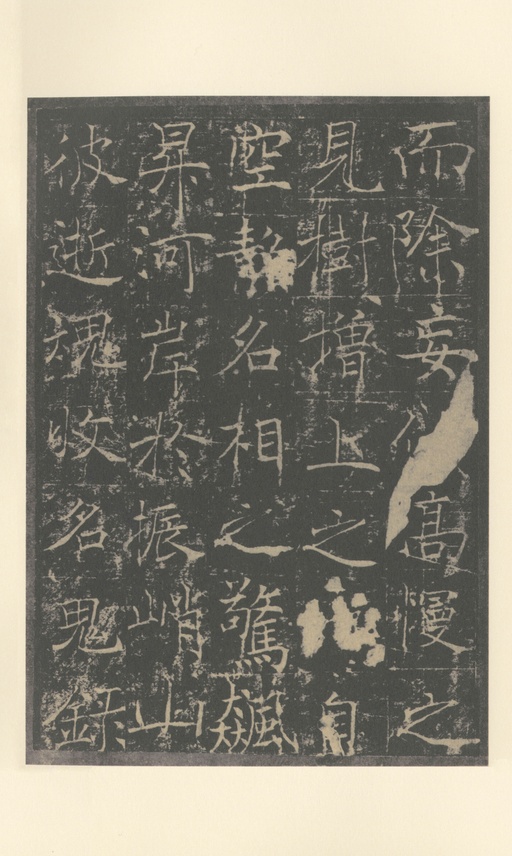 而除妄高慢之
見樹增上之自
空名相之驚飆
昇河岸於振峭山
彼逝魂收名鬼錄